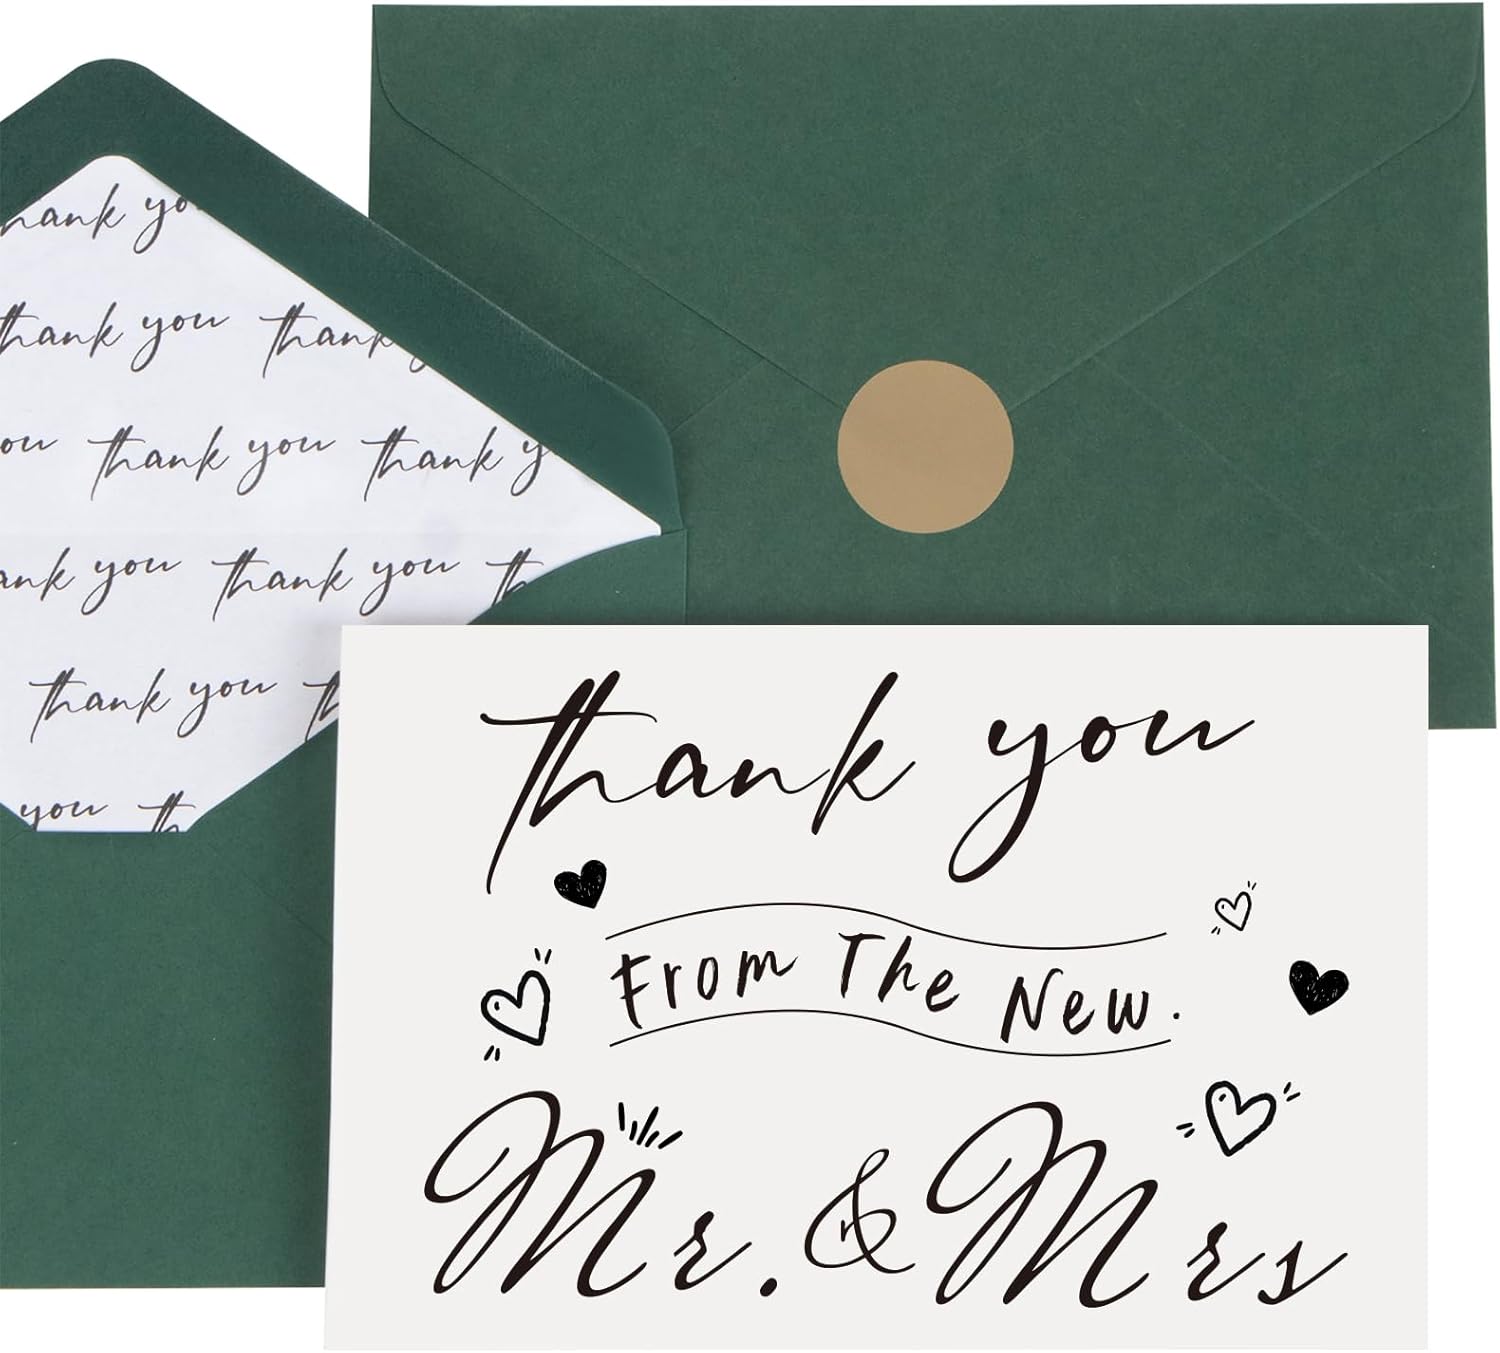 thank yo
thank you thank
you thank you thank y
thank you thank you th
thank you th
you th
thank you
From The New.
Mr. & Mrs